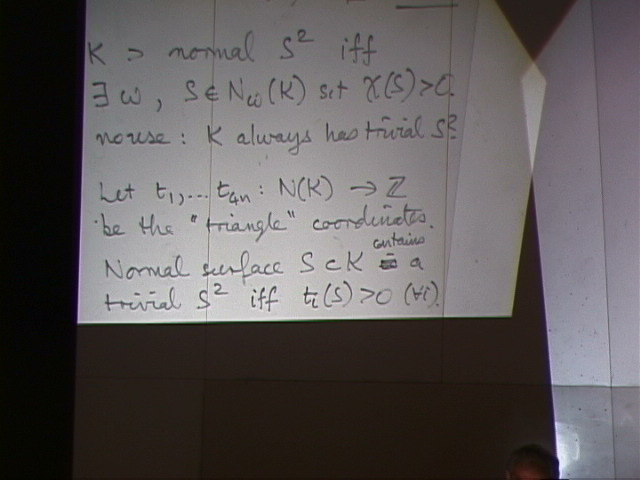 K ⊃ normal S² iff
∃ ω, S ∈ Nω(K) st χ(S)>0.
no use: K always has trivial S²
Let t₁,... t₄ₙ : N(K) → Z
be the "triangle" coordinates.
Normal surface S ⊂ K contains a
trivial S² iff tᵢ(S)>0 (∀i).